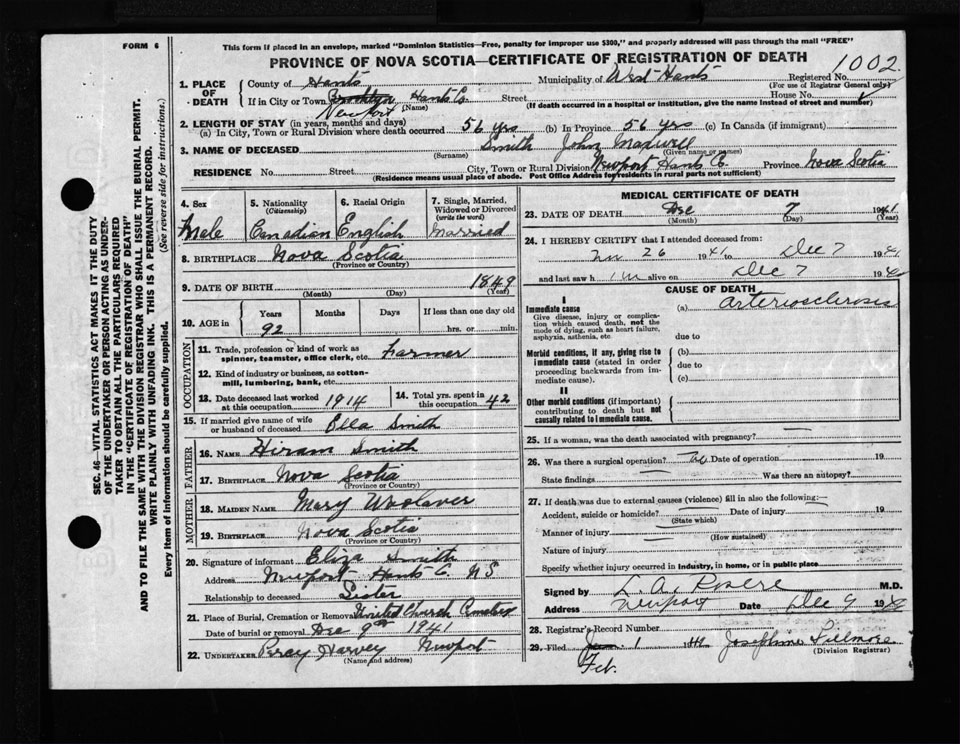 FORM 6
This form if placed in an envelope, marked "Dominion Statistics—Free, penalty for improper use $300," and properly addressed will pass through the mail "FREE"
PROVINCE OF NOVA SCOTIA—CERTIFICATE OF REGISTRATION OF DEATH
1002
1. PLACE OF DEATH
County of Hants Municipality of West Hants Registered No.
(For use of Registrar General only)
If in City or Town Brooklyn Hants Co. Street House No.
Newport (Name) (If death occurred in a hospital or institution, give the name instead of street and number)
2. LENGTH OF STAY (in years, months and days)
(a) In City, Town or Rural Division where death occurred 56 yrs (b) In Province 56 yrs (c) In Canada (if immigrant)
3. NAME OF DECEASED Smith John Maxwell
(Surname) (Given name or names)
RESIDENCE No. Street City, Town or Rural Division Newport, Hants Co. Province Nova Scotia
(Residence means usual place of abode. Post Office Address for residents in rural parts not sufficient)
4. Sex
Male
5. Nationality
(Citizenship)
Canadian
6. Racial Origin
English
7. Single, Married, Widowed or Divorced
(write the word)
Married
8. BIRTHPLACE Nova Scotia
(Province or Country)
9. DATE OF BIRTH 1849
(Month) (Day) (Year)
10. AGE in Years Months Days If less than one day old
92 hrs. or min.
OCCUPATION
11. Trade, profession or kind of work as spinner, teamster, office clerk, etc. Farmer
12. Kind of industry or business, as cotton-mill, lumbering, bank, etc.
13. Date deceased last worked at this occupation 1914
14. Total yrs. spent in this occupation 42
15. If married give name of wife or husband of deceased Ella Smith
FATHER
16. NAME Hiram Smith
17. BIRTHPLACE Nova Scotia
(Province or Country)
MOTHER
18. MAIDEN NAME Mary Woolaver
19. BIRTHPLACE Nova Scotia
(Province or Country)
20. Signature of informant Eliza Smith
Address Newport Hants Co. N S
Relationship to deceased Sister
21. Place of Burial, Cremation or Removal United Church Cemetery
Date of burial or removal Dec 9th 1941
22. UNDERTAKER Percy Harvey Newport
(Name and address)
MEDICAL CERTIFICATE OF DEATH
23. DATE OF DEATH Dec 7 1941
(Month) (Day) (Year)
24. I HEREBY CERTIFY that I attended deceased from:
Nov 26 1941 to Dec 7 1941
and last saw him alive on Dec 7 194
CAUSE OF DEATH
I
Immediate cause (a) arteriosclerosis
Give disease, injury or complication which caused death, not the mode of dying, such as heart failure, asphyxia, asthenia, etc
due to
Morbid conditions, if any, giving rise to immediate cause (stated in order proceeding backwards from immediate cause).
(b)
due to
(c)
II
Other morbid conditions (if important) contributing to death but not causally related to immediate cause.
25. If a woman, was the death associated with pregnancy?
26. Was there a surgical operation? No Date of operation 19
State findings Was there an autopsy?
27. If death was due to external causes (violence) fill in also the following:
Accident, suicide or homicide? Date of injury 19
(State which)
Manner of injury
(How sustained)
Nature of injury
Specify whether injury occurred in industry, in home, or in public place
Signed by L. A. M.D.
Address Newport Date Dec 9 19
28. Registrar's Record Number
29. Filed 1 19 Josephine Fillmore
Feb. (Division Registrar)
SEC. 46—VITAL STATISTICS ACT MAKES IT THE DUTY
OF THE UNDERTAKER OR PERSON ACTING AS UNDER-
TAKER TO OBTAIN ALL THE PARTICULARS REQUIRED
IN THE "CERTIFICATE OF REGISTRATION OF DEATH"
AND TO FILE THE SAME WITH THE DIVISION REGISTRAR WHO SHALL ISSUE THE BURIAL PERMIT.
WRITE PLAINLY WITH UNFADING INK. THIS IS A PERMANENT RECORD.
Every item of information should be carefully supplied. (See reverse side for instructions.)